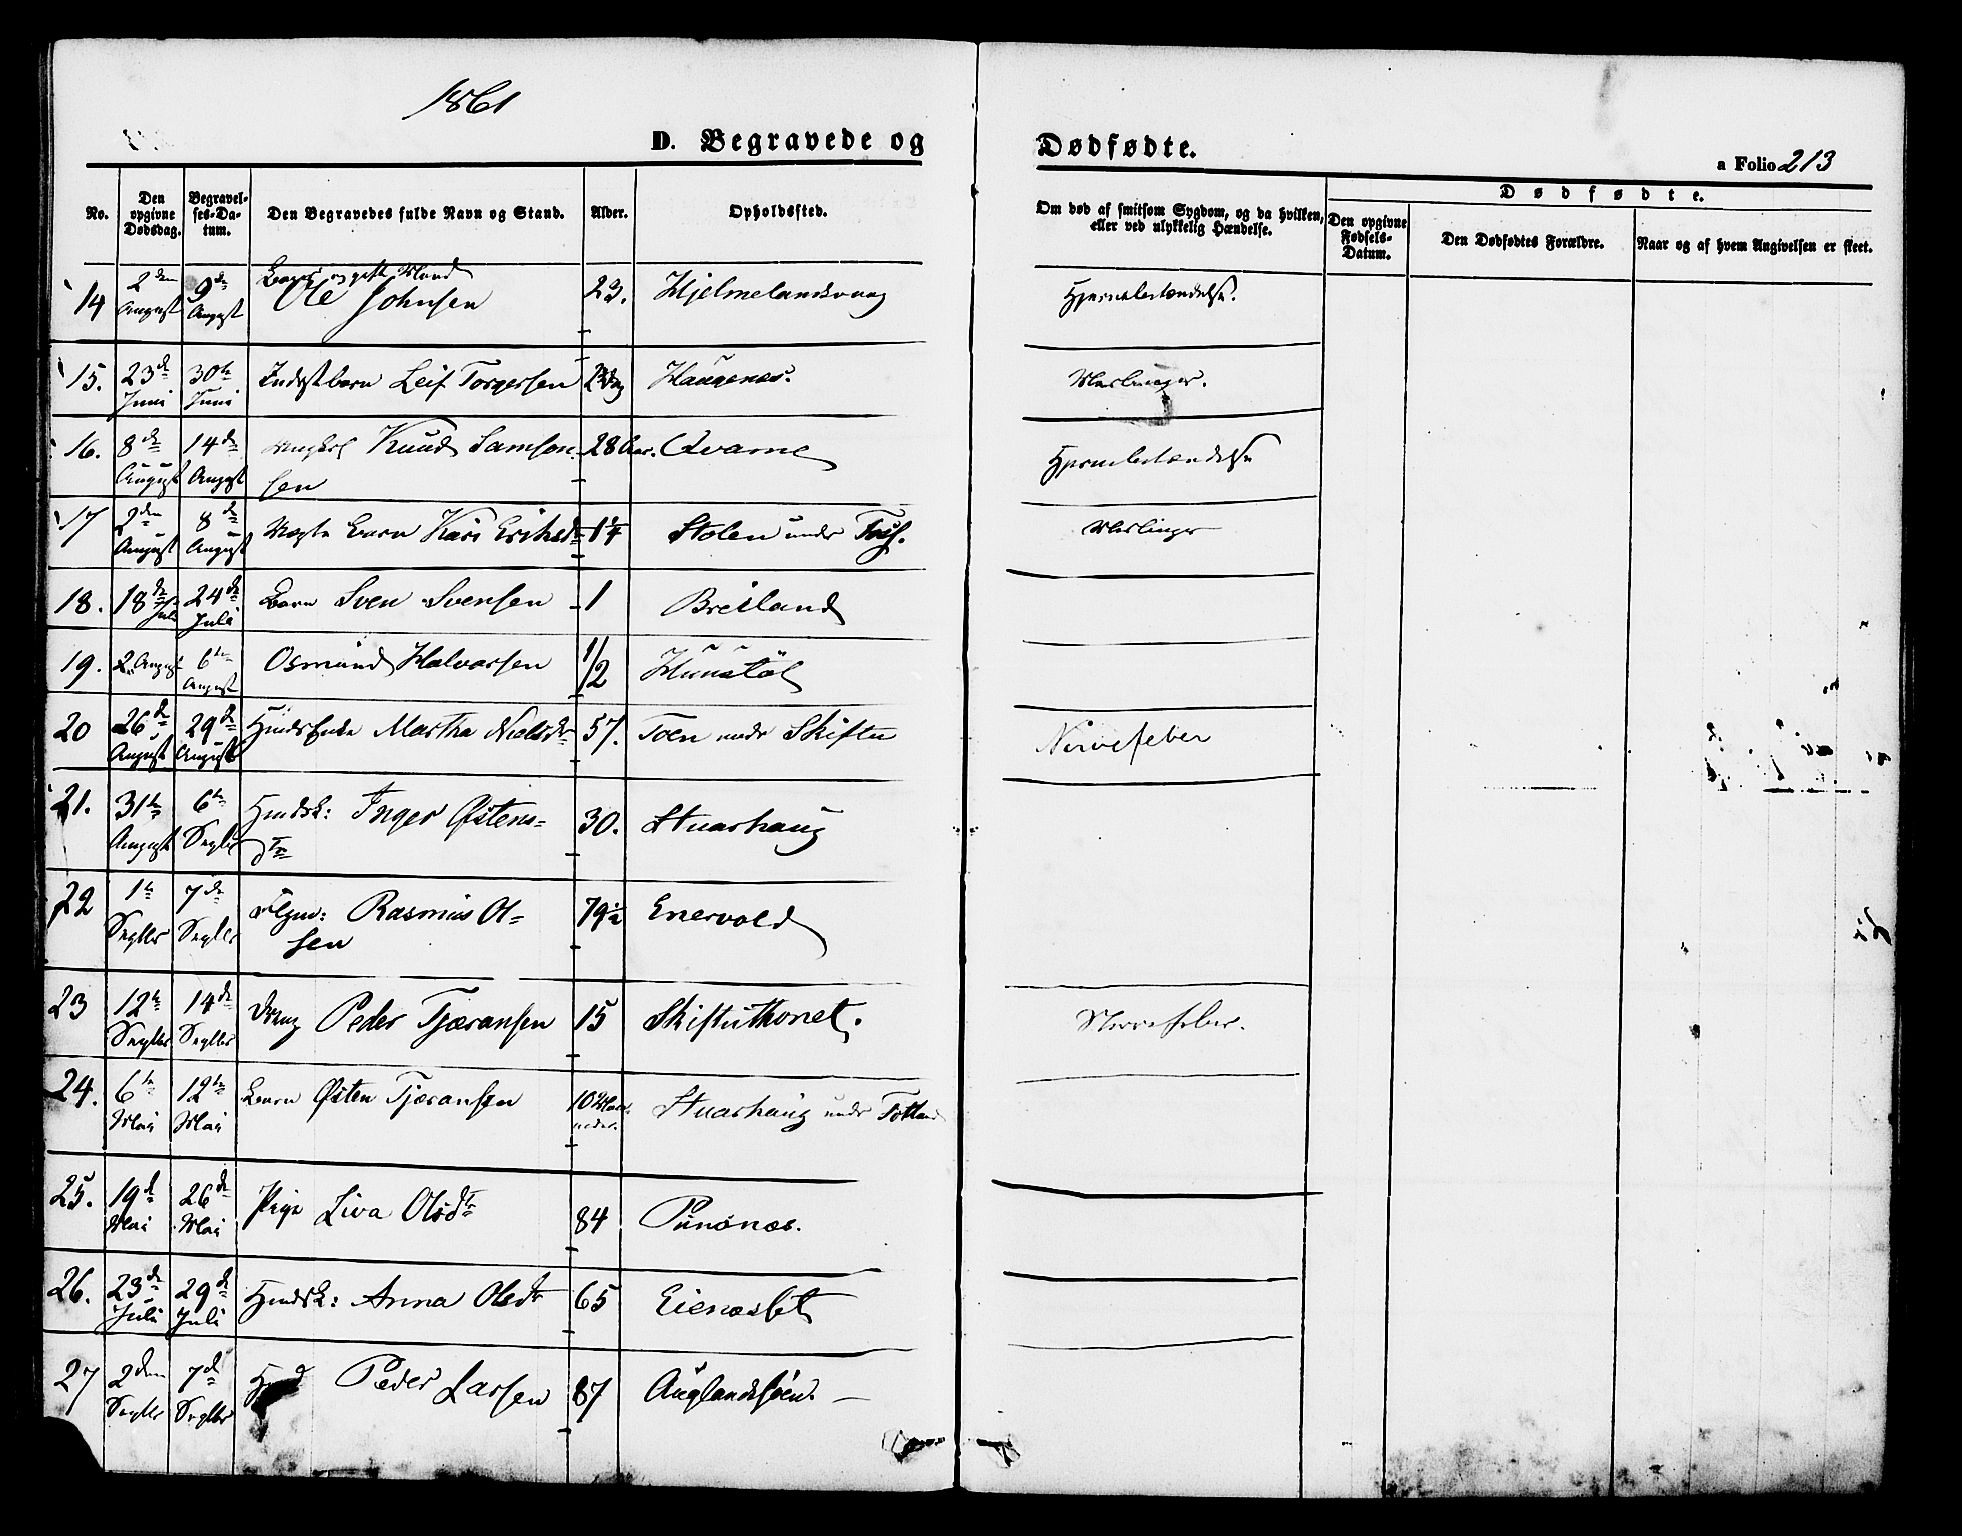 1861
D. Begravede og Dødfødte.
a Folio 213
No.
Den opgivne Dødsdag.
Begravelses-Datum.
Den Begravedes fulde Navn og Stand.
Alder.
Opholdssted.
Om død af smitsom Sygdom, og da hvilken, eller ved ulykkelig Hændelse.
Dødfødte.
Den opgivne Fødsels-Datum.
Den Dødfødtes Forældre.
Naar og af hvem Angivelsen er skeet.
14 2den August 9de August gift Mand Ole Johnsen 23. Hjelmelandsvaag Hjernebetændelse.
15. 23de Juni 30te Juni Indstbarn Leif Torgersen Haugenæs.
16. 8de August 14de August Ungkrl Knud Samsonsen 28 Aar. Qvame Hjernebetændelse
17 2den August 8de August Barn Kari Eriksdtr 1¼ Stolen under
18. 18de Juli 24de Juli Barn Sven Svensen 1 Breiland
19. 2. August 6te August Osmund Halvorsen 1/2 Hunstøl
20 26de August 29de August Huusk Enke Martha Nielsdtr 57. Toen under Skiftu Nervefeber
21. 31te August 6te Septbr Huusk: Inger Østensdtr 30. Stuarhaug
22 1te Septbr 7de Septbr Flgm: Rasmus Olsen 79½ Enervold
23 12te Septbr 14de Septbr Dreng Peder Tjæransen 15 Skiftuthonet. Nervefeber.
24. 6te Mai 12te Mai Barn Østen Tjæransen 10 Maaneder. Stuarhaug under Fotland
25. 19de Mai 26de Mai Pige Liva Olsdtr 84 Punsnæs.
26. 23de Juli 29de Juli Huusk: Anna Olsdtr 65 Eienæslet
27 2den Septbr 7de Septbr Peder Larsen 87 Auglandsføen. —